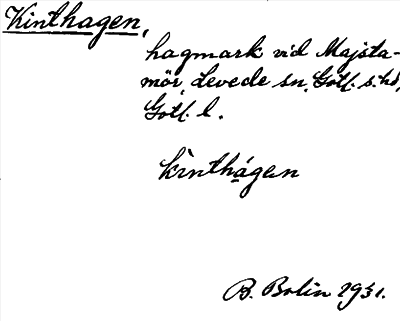 Kinthagen,
hagmark vid Majsta-
mör, Levede sn. Gotl. s. hd,
Gotl. l.
kinthágen
B. Bolin 1931.